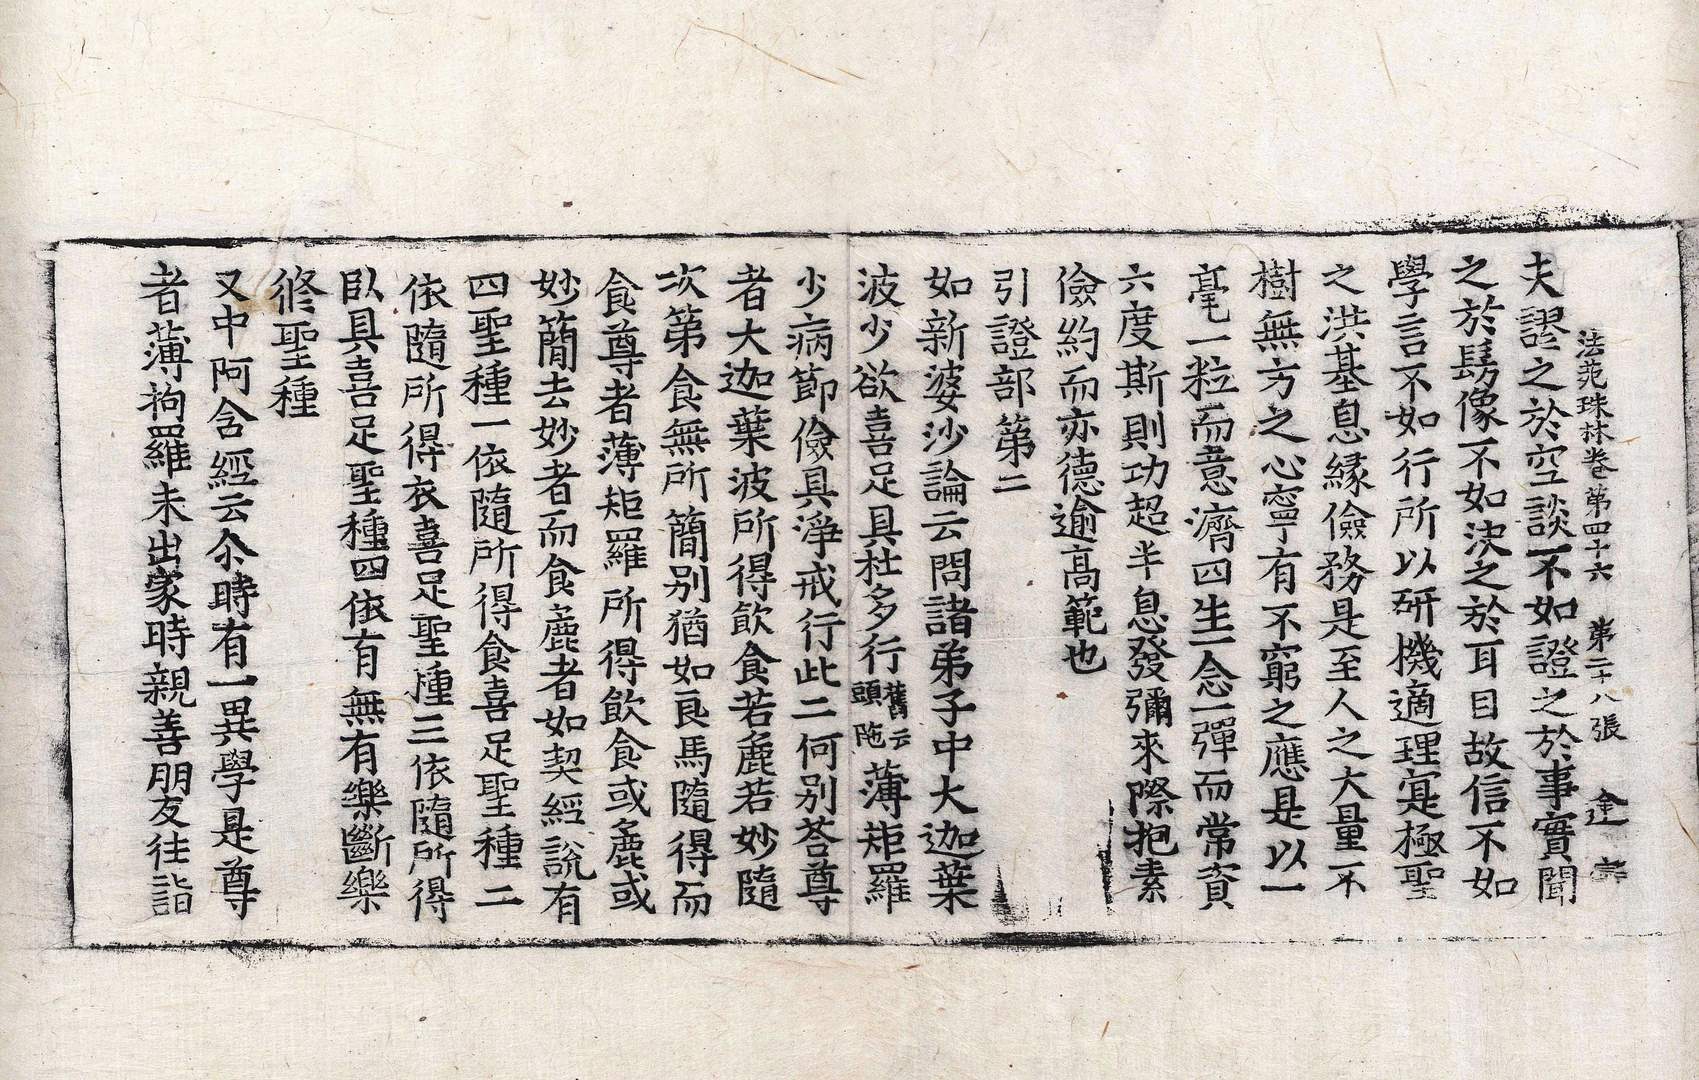 法苑珠林卷第四十六 第二十八張
夫謬之於空談不如證之於事實聞
之於髣像不如決之於耳目故信不如
學言不如行所以研機適理寔極聖
之洪基息緣儉務是至人之大量不
樹無方之心寧有不窮之應是以一
毫一粒而意濟四生一念一彈而常資
六度斯則功超半息發彌來際抱素
儉約而亦德逾高範也
引證部第二
如新婆沙論云問諸弟子中大迦葉
波少欲喜足具杜多行舊云頭陁薄矩羅
少病節儉具淨戒行此二何別荅尊
者大迦葉波所得飲食若麁若妙隨
次第食無所簡別猶如良馬隨得而
食尊者薄矩羅所得飲食或麁或
妙簡去妙者而食麁者如契經說有
四聖種一依隨所得食喜足聖種二
依隨所得衣喜足聖種三依隨所得
臥具喜足聖種四依有無有樂斷樂
修聖種
又中阿含經云尒時有一異學是尊
者薄拘羅未出家時親善朋友往詣